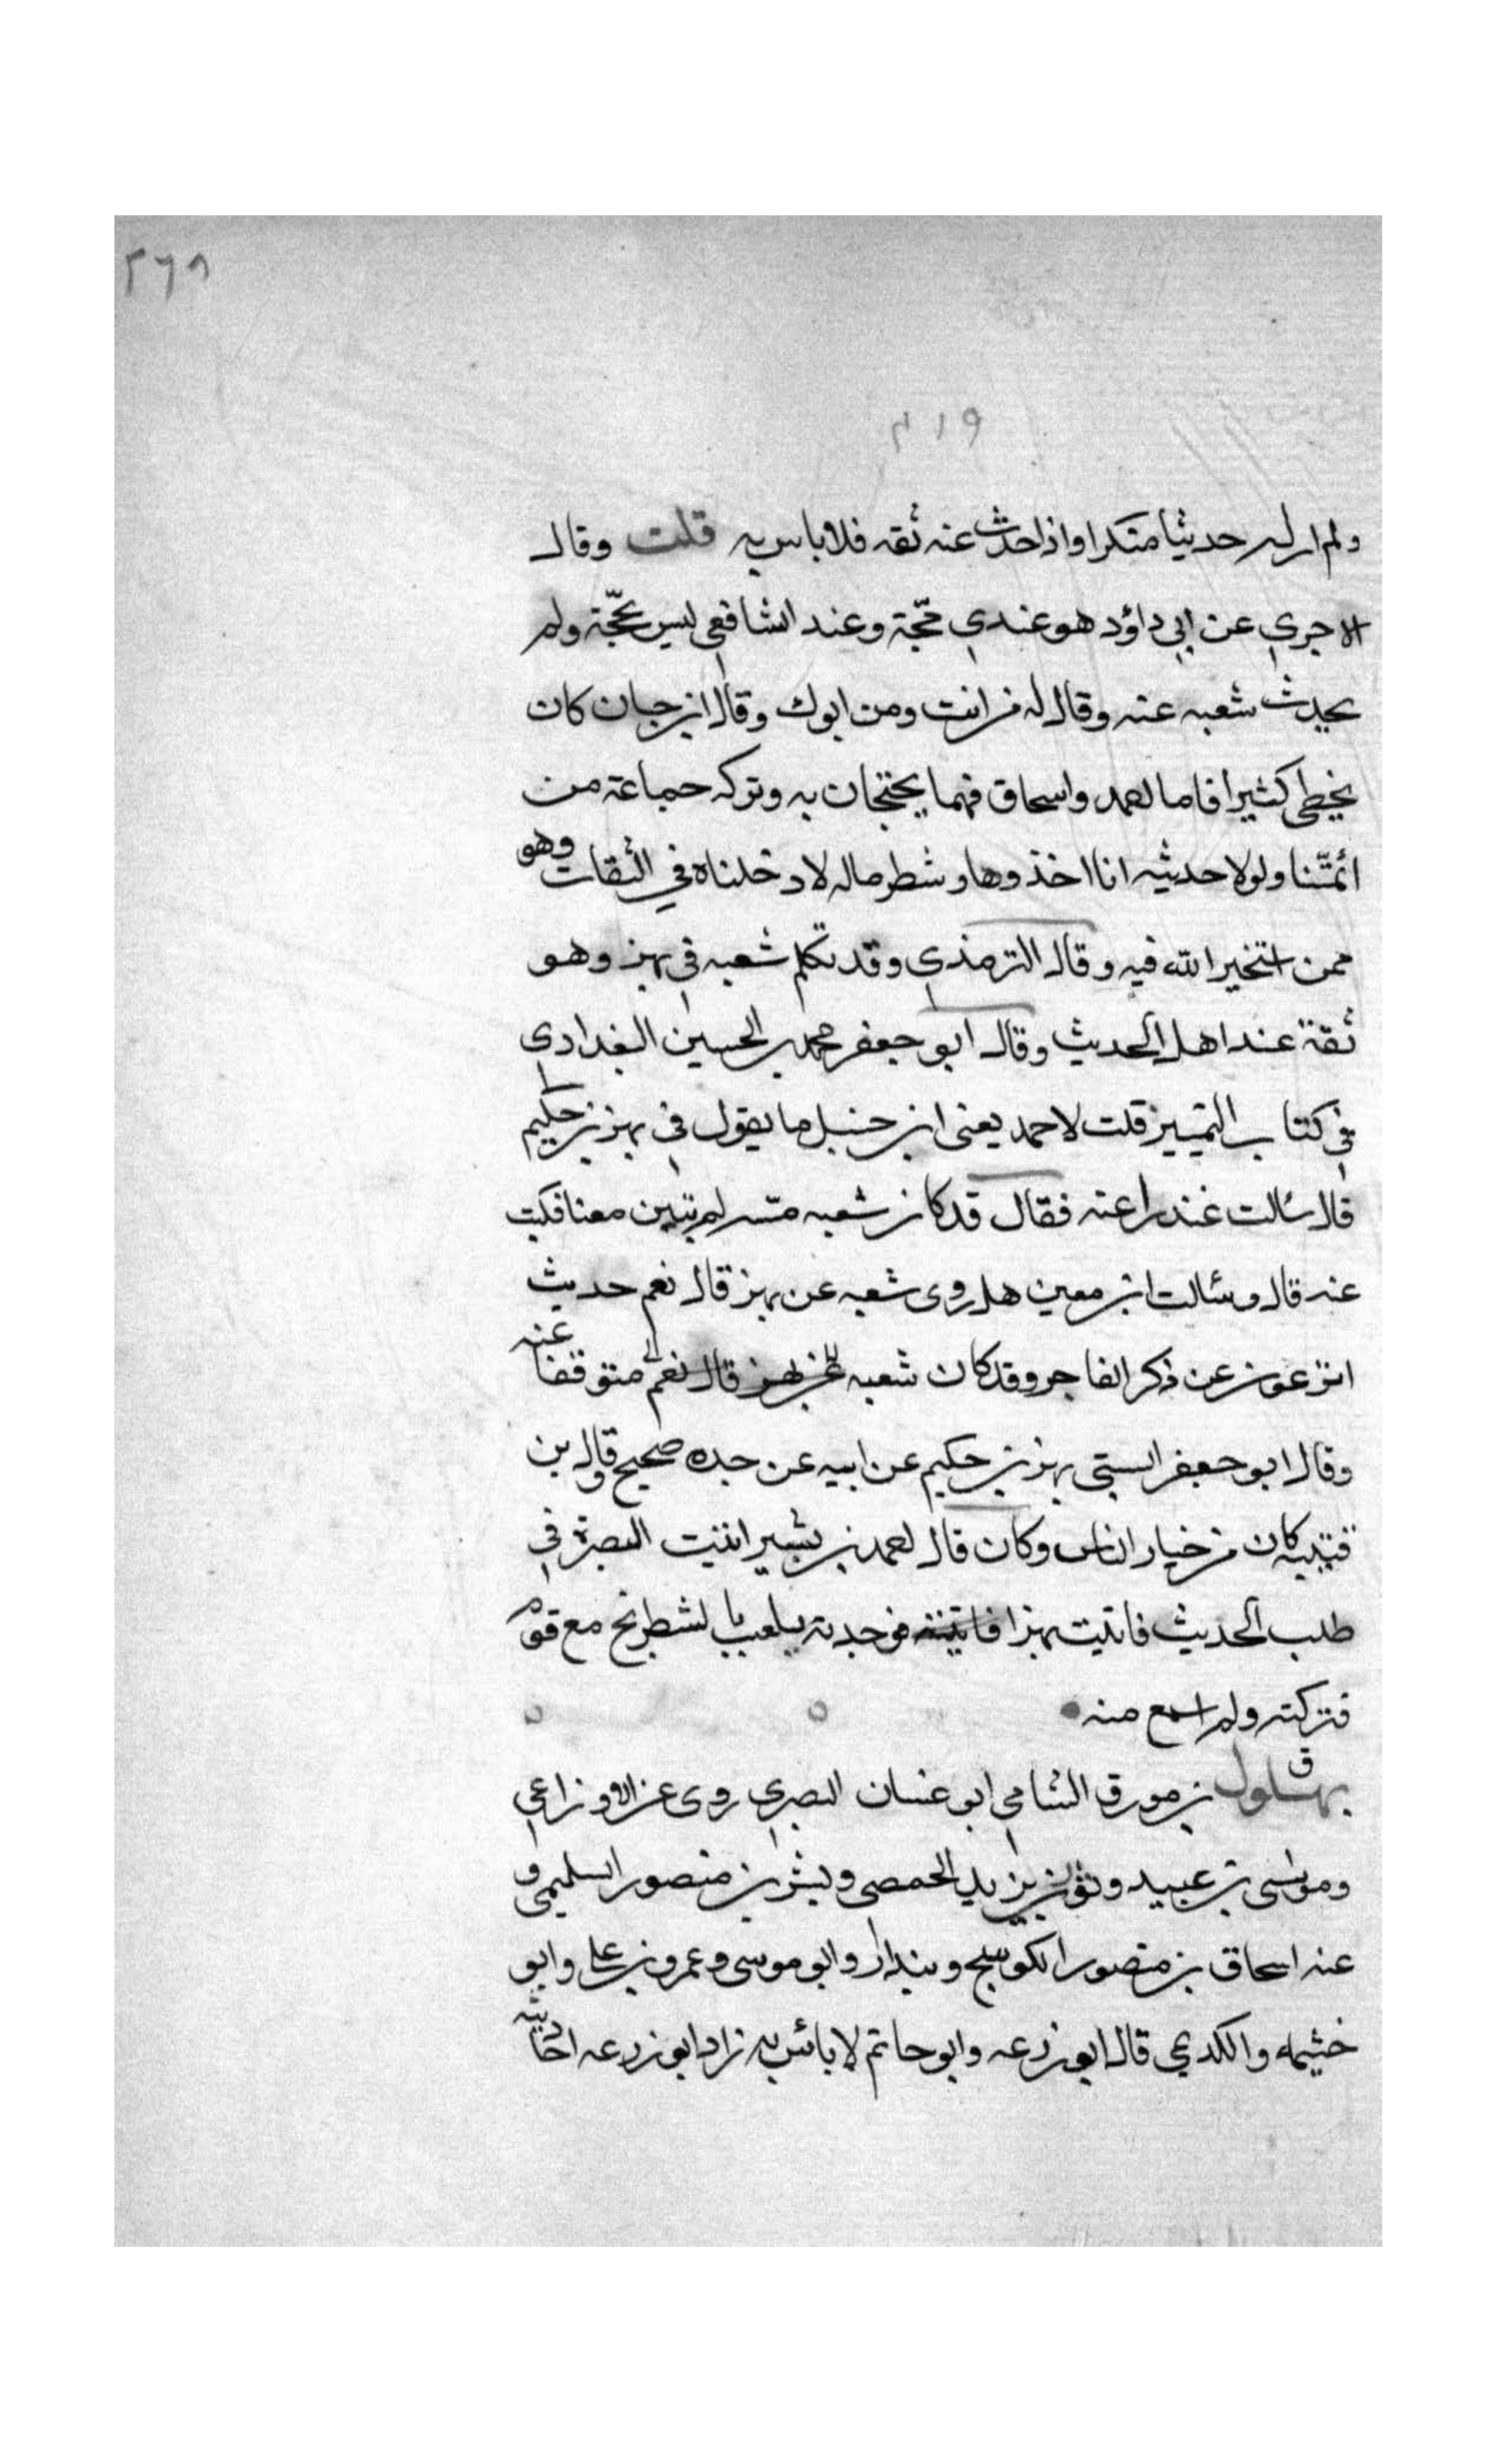 ٢٦٨
٣١٩
ولم ار له حديثا منكرا واذا حدث عنه ثقه فلا باس به قلت وقال
الاجري عن ابي داؤد هو عندي حجّة وعند الشافعي ليس بحجّة ولم
يحدث شعبه عنه وقال له من انت ومن ابوك وقال ابن حبان كان
يخطي كثيرا فاما احمد واسحاق فهما يحتجان به وتركه جماعة من
ائمّتنا ولولا حديثه انا اخذوها وشطر ماله لادخلناه في الثقات وهو
ممن استخير الله فيه وقال الترمذي وقد تكلم شعبه في بهز وهو
ثقة عند اهل الحديث وقال ابو جعفر محمد بن الحسين البغدادي
في كتاب التمييز قلت لاحمد يعني ابن حنبل ما يقول في بهز بن حكيم
قال سالت غندرا عنه فقال قد كان شعبه مسه لم تبين معنا فكبت
عنه قال وسئالت ابن معين هل روى شعبه عن بهز قال نعم حديث
اتزعون عن ذكر الفاجر وقد كان شعبه متوقفا عنه
وقال ابو جعفر البستي بهز بن حكيم عن ابيه عن جده صحيح وقال بن
قتيبه كان من خيار الناس وكان قال احمد بن بشير اتيت البصرة في
طلب الحديث فاتيت بهزا فوجدته يلعب بالشطرنج مع قوم
فتركته ولم اسمع منه
ق
بهلول بن مورق الشامي ابو غسان البصري روى عن الاوزاعي
وموسى بن عبيد وثور بن يزيد الحمصي وبشر بن منصور السليمي و
عنه اسحاق بن منصور الكوسج وبندار وابو موسى وعمرو بن علي وابو
خثيمه والكديمي قال ابو زرعه وابو حاتم لا بائس به زاد ابو زرعه احاديثه